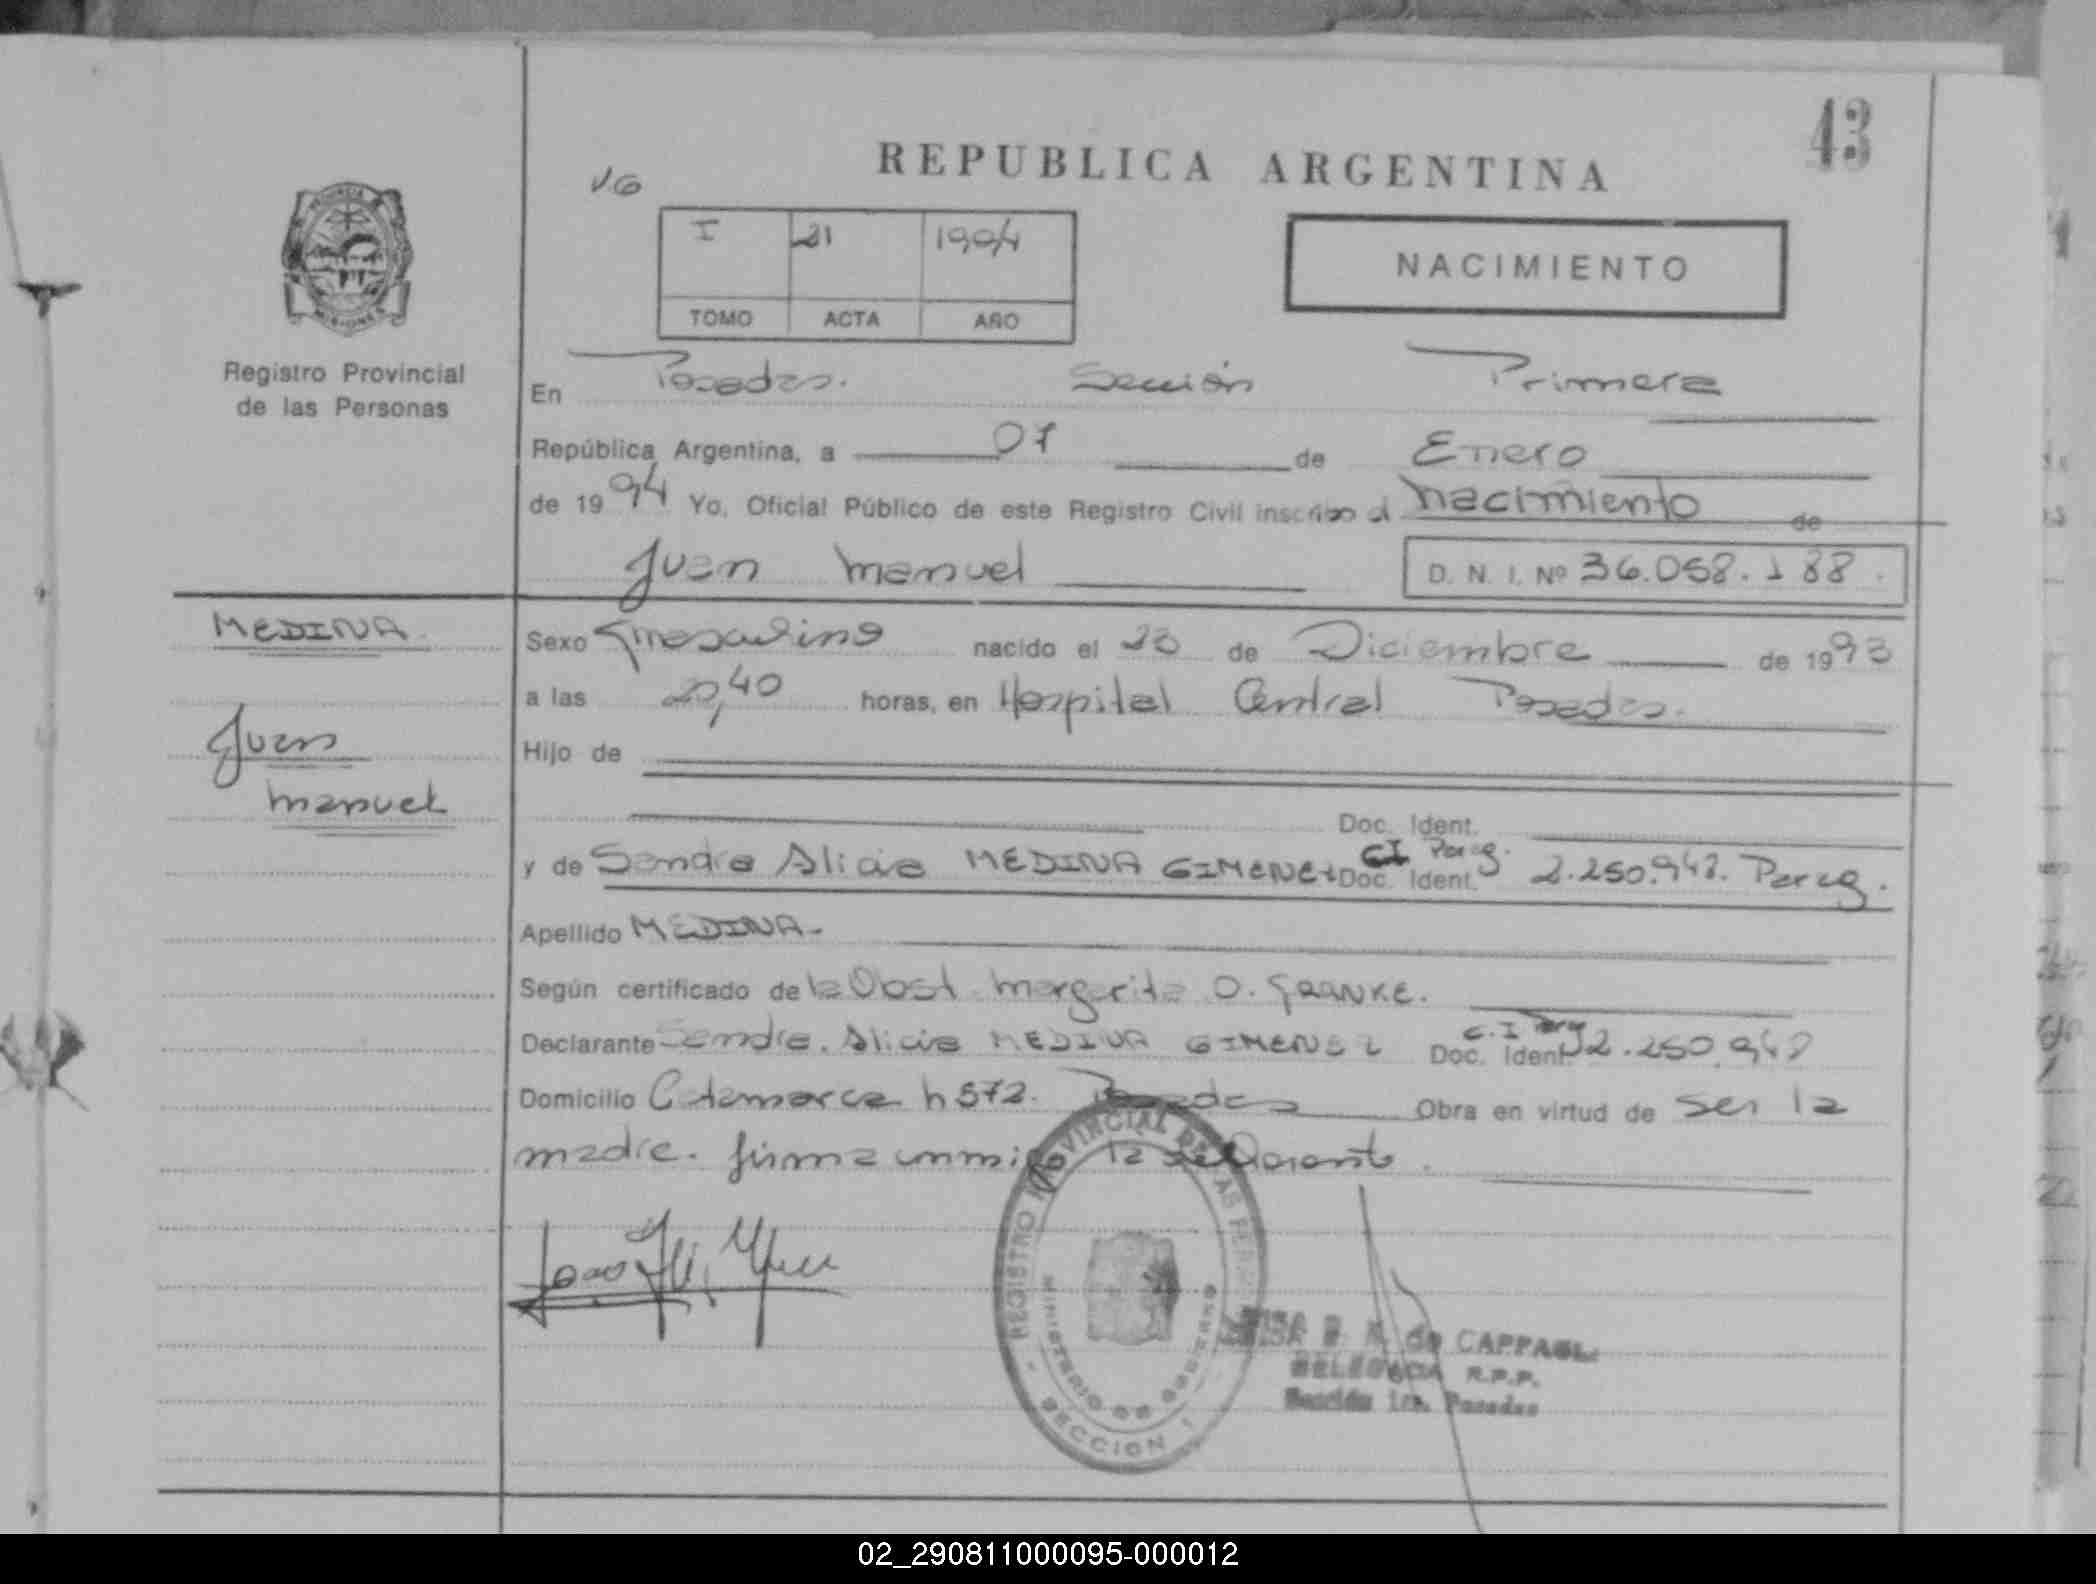 43
REPUBLICA ARGENTINA
I 21 1994
TOMO ACTA AÑO
NACIMIENTO
PROVINCIA
MISIONES
Registro Provincial
de las Personas
En Posadas. Sección Primera
República Argentina, a 07 de Enero
de 1994 Yo, Oficial Público de este Registro Civil inscribo el nacimiento de
Juan Manuel D. N. I. Nº 36.058.188.
MEDINA
Juan
Manuel
Sexo masculino nacido el 23 de Diciembre de 1993
a las 20,40 horas, en Hospital Central Posadas.
Hijo de
Doc. Ident.
CI Parag.
y de Sandra Alicia MEDINA GIMENEZ Doc. Ident. 2.250.942. Parag.
Apellido MEDINA-
Según certificado de la Obst. Margarita O.
C.I Parag
Declarante Sandra Alicia MEDINA GIMENEZ Doc. Ident. 2.250.942
Domicilio Catamarca n 572. Posadas Obra en virtud de ser la
madre. firma conmigo la declarante.
REGISTRO PROVINCIAL DE LAS PERSONAS
MINISTERIO DE GOBIERNO
SECCION 1
de
DELEGADA R.P.P.
Sección 1ra. Posadas
02_290811000095-000012